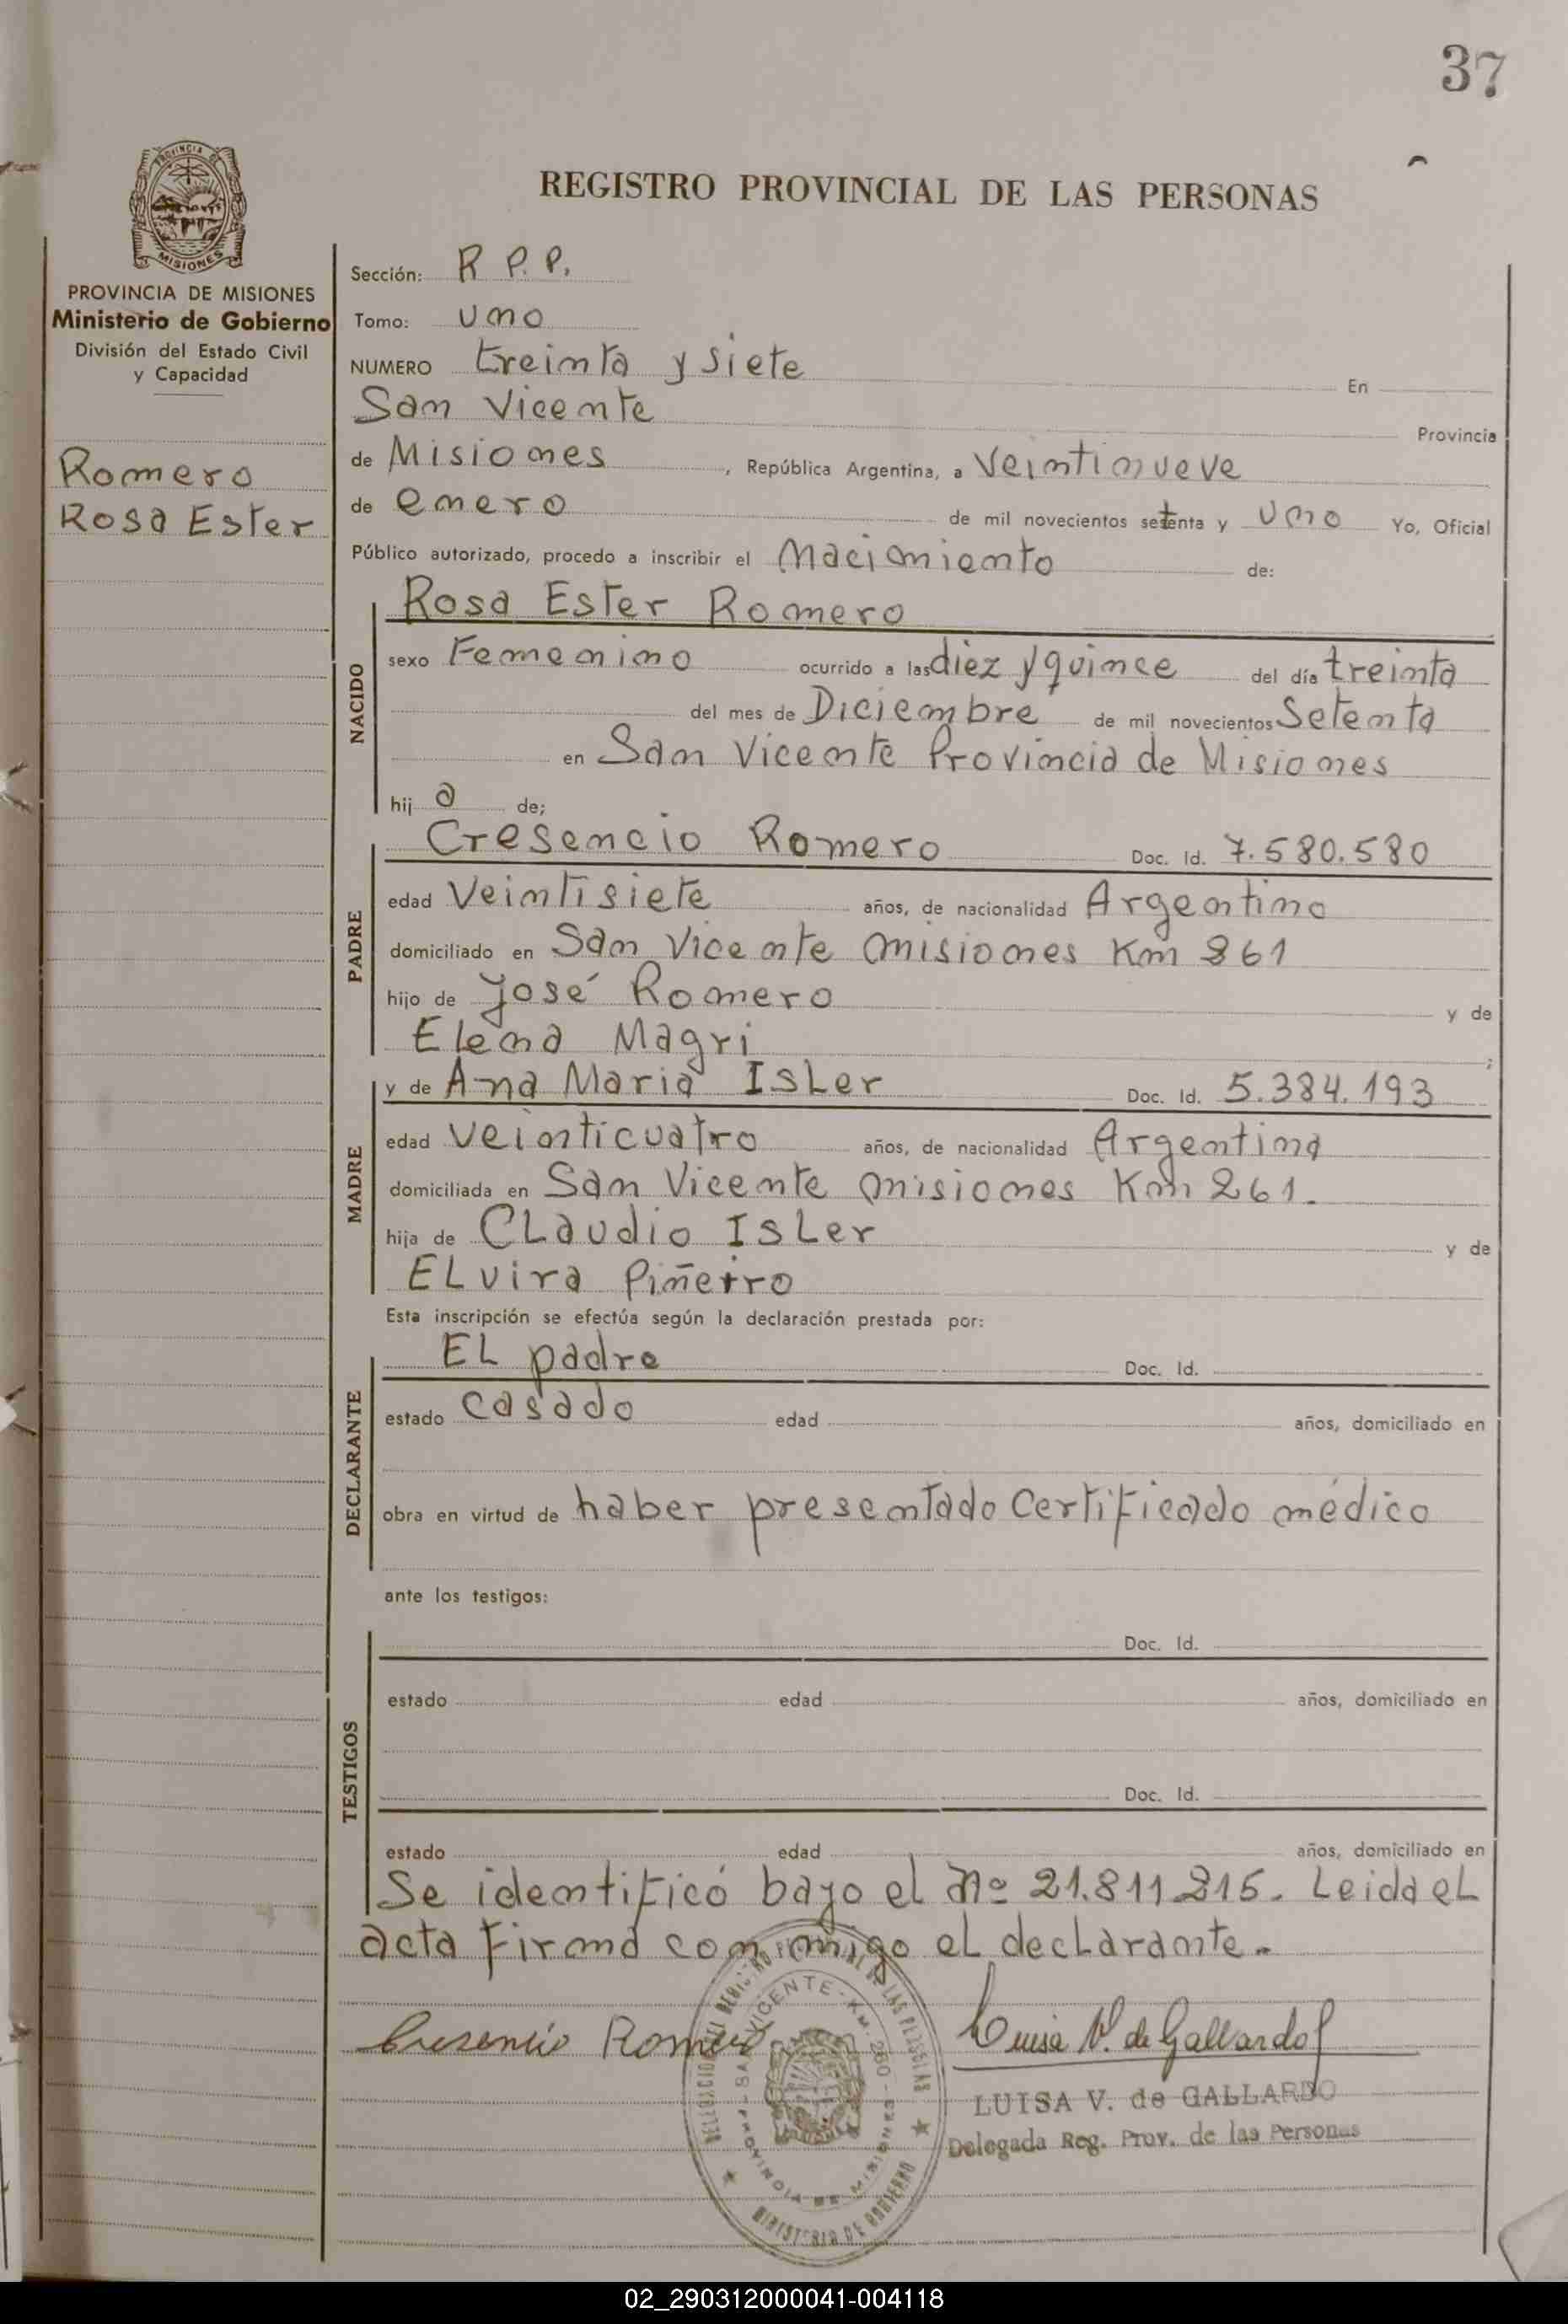 37
PROVINCIA DE
MISIONES
REGISTRO PROVINCIAL DE LAS PERSONAS
PROVINCIA DE MISIONES
Ministerio de Gobierno
División del Estado Civil
y Capacidad
Romero
Rosa Ester
Sección: R P.P.
Tomo: uno
NUMERO treinta y siete En
San Vicente Provincia
de Misiones, República Argentina, a Veintinueve
de enero de mil novecientos setenta y uno Yo, Oficial
Público autorizado, procedo a inscribir el Nacimiento de:
NACIDO
Rosa Ester Romero
sexo Femenino ocurrido a las diez y quince del día treinta
del mes de Diciembre de mil novecientos Setenta
en San Vicente Provincia de Misiones
hij a de;
PADRE
Cresencio Romero Doc. Id. 7.580.580
edad Veintisiete años, de nacionalidad Argentino
domiciliado en San Vicente misiones Km 261
hijo de José Romero y de
Elena Magri ;
MADRE
y de Ana Maria Isler Doc. Id. 5.384.193
edad veinticuatro años, de nacionalidad Argentina
domiciliada en San Vicente misiones Km 261.
hija de Claudio Isler y de
Elvira Piñeiro
Esta inscripción se efectúa según la declaración prestada por:
DECLARANTE
El padre Doc. Id.
estado casado edad años, domiciliado en
obra en virtud de haber presentado Certificado médico
ante los testigos:
TESTIGOS
Doc. Id.
estado edad años, domiciliado en
Doc. Id.
estado edad años, domiciliado en
Se identificó bajo el nº 21.811.215. Leida el
acta firma con migo el declarante.
Cresencio Romero
Luisa V. de Gallardo
LUISA V. de GALLARDO
Delegada Reg. Prov. de las Personas
DELEGACION DEL REGISTRO PROVINCIAL DE LAS PERSONAS
SAN VICENTE - KM. 260 -
PROVINCIA DE MISIONES
MINISTERIO DE GOBIERNO
02_290312000041-004118